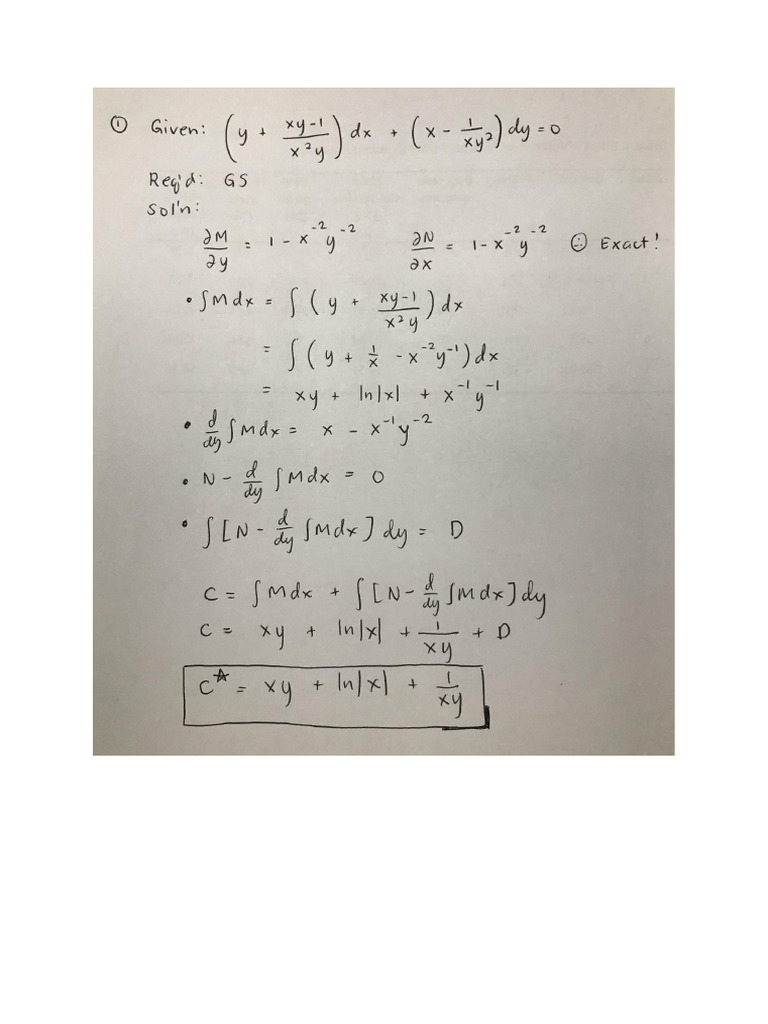 ① Given: (y + (xy-1)/(x²y)) dx + (x - 1/(xy²)) dy = 0
Req'd: GS
Sol'n:
∂M/∂y = 1 - x⁻²y⁻² ∂N/∂x = 1 - x⁻²y⁻² ☺ Exact!
• ∫Mdx = ∫(y + (xy-1)/(x²y)) dx
= ∫(y + 1/x - x⁻²y⁻¹) dx
= xy + ln|x| + x⁻¹y⁻¹
• d/dy ∫Mdx = x - x⁻¹y⁻²
• N - d/dy ∫Mdx = 0
• ∫[N - d/dy ∫Mdx] dy = D
C = ∫Mdx + ∫[N - d/dy ∫Mdx] dy
C = xy + ln|x| + 1/(xy) + D
C☆ = xy + ln|x| + 1/(xy)